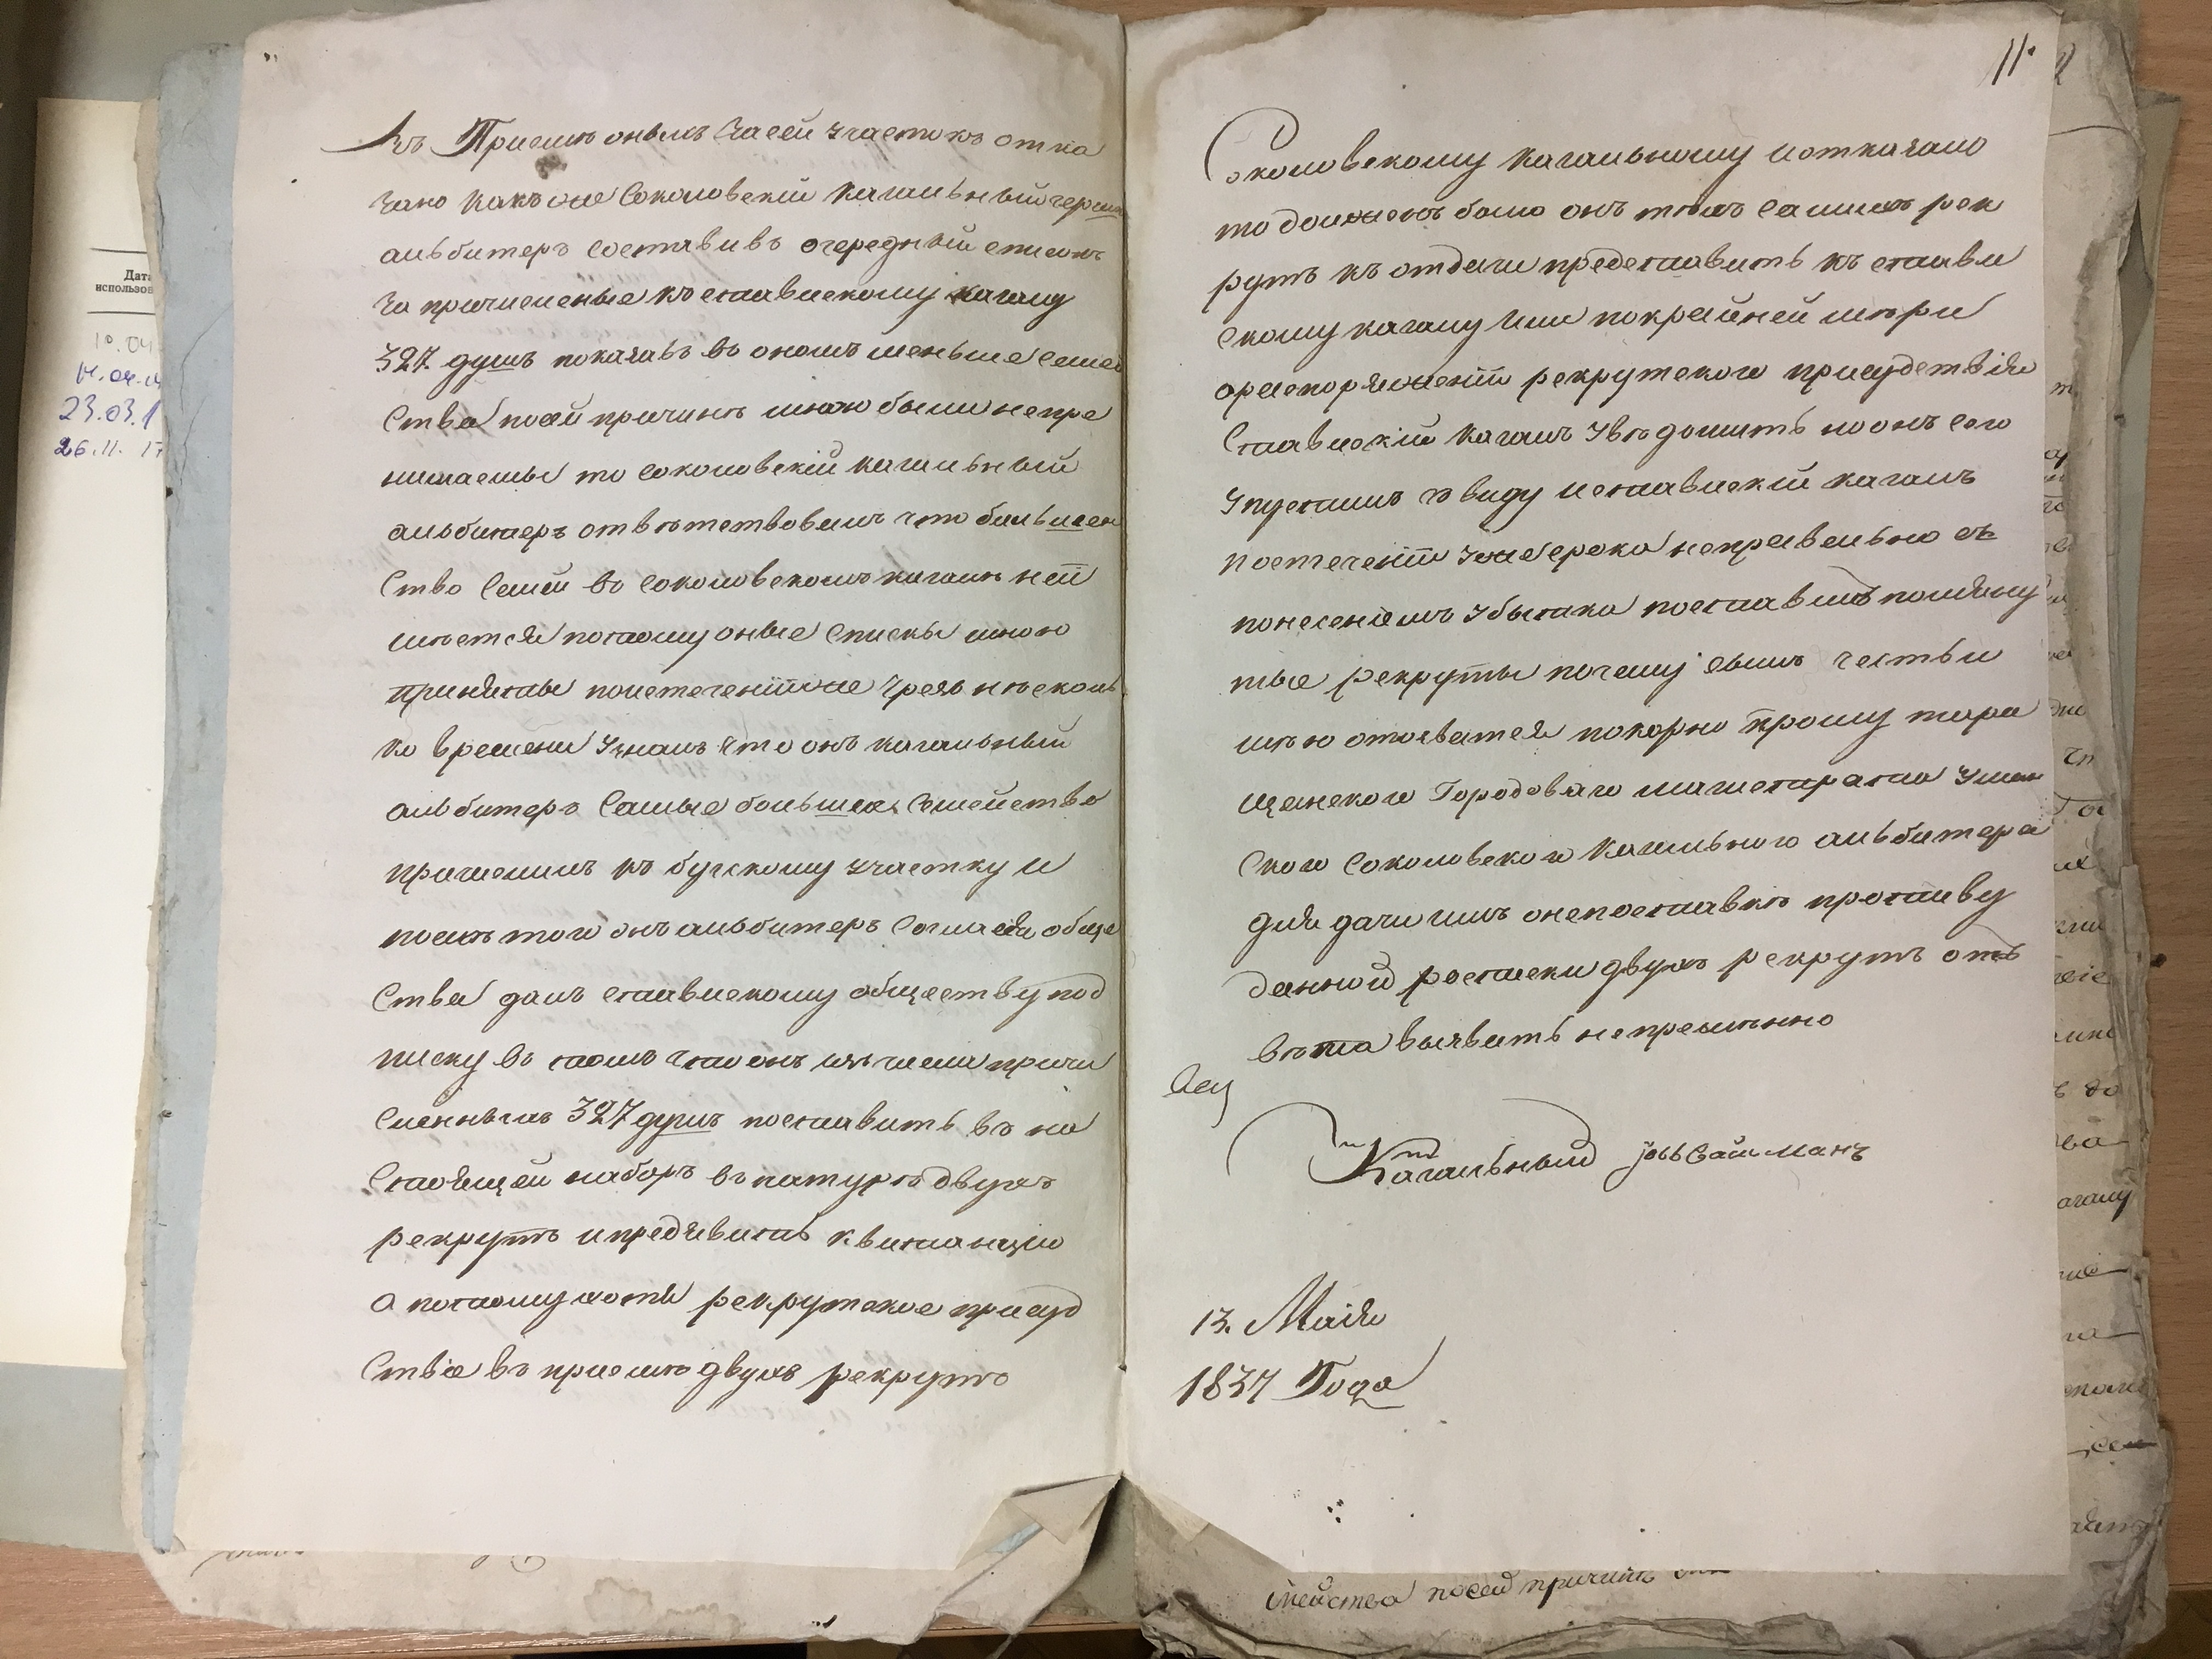 Дата
использов
10.04
14.04.14
23.03.1
26.11.17
въ Приемѣ оныхъ Засей участокъ отка
зано какъ же Соколовскій Кагальный герш
альбитеръ Составивъ очередный списокъ
За причисленые къ ставискому кагалу
327 душъ показавъ во ономъ меньше Семей
Ства посей причинѣ мною были непре
нимаемы то Соколовскій кагальный
альбитеръ отвѣтствовалъ что большен
Ство Семей въ Соколовскомъ кагалѣ неи
мѣется потому оные Списки мною
приняты поистеченіи же чрезъ нѣсколь
ко времени Узналъ что онъ кагальный
альбитеръ Самые большея Смейство
причислилъ къ бугскому участку и
послѣ того онъ альбитеръ Согласія обще
Ства далъ ставискому обществу под
писку въ томъ что онъ изъ числа причи
Сленныхъ 327 душъ поставить въ на
Стоящей наборъ въ натурѣ двухъ
рекрутъ и предявить квитанцію
а потому хотя рекрутское присуд
Ствіе въ приемѣ двухъ рекрутъ
11.
Соколовскому кагальному и отказано
то долженъ было онъ тѣхъ Самихъ рек
рутъ къ отдачи представить къ стави
Скому кагалу Или покрайней мѣри
ораспоряженіи рекрутского присудствія
Ставискій кагалъ Увѣдомить но онъ Сего
Упустилъ съ виду и ставискій кагалъ
поистеченіи Уже Срока неправельно съ
понесеніемъ Убытка поставилъ помяну
тые рекруты почему Симъ честь и
мѣю отозватся покорно прошу тара
щанского Городоваго магистрата Уман
Ского Соколовского Кагального альбитера
для дачи имъ онепоставкѣ противу
данной росписки двухъ рекрутъ отъ
вѣта вызвать непремѣнно
Кагальный
13. Маія
1837 Года
Смейства посей причинѣ